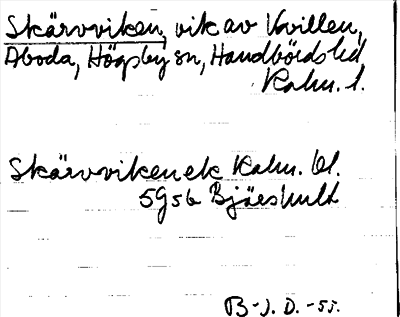 Skärvviken, vik av Kvillen,
Aboda, Högsby sn, Handbörds hd
Kalm. l.
Skärvviken ek Kalm. bl.
5956 Bjäeshult
B-J. D. -55.